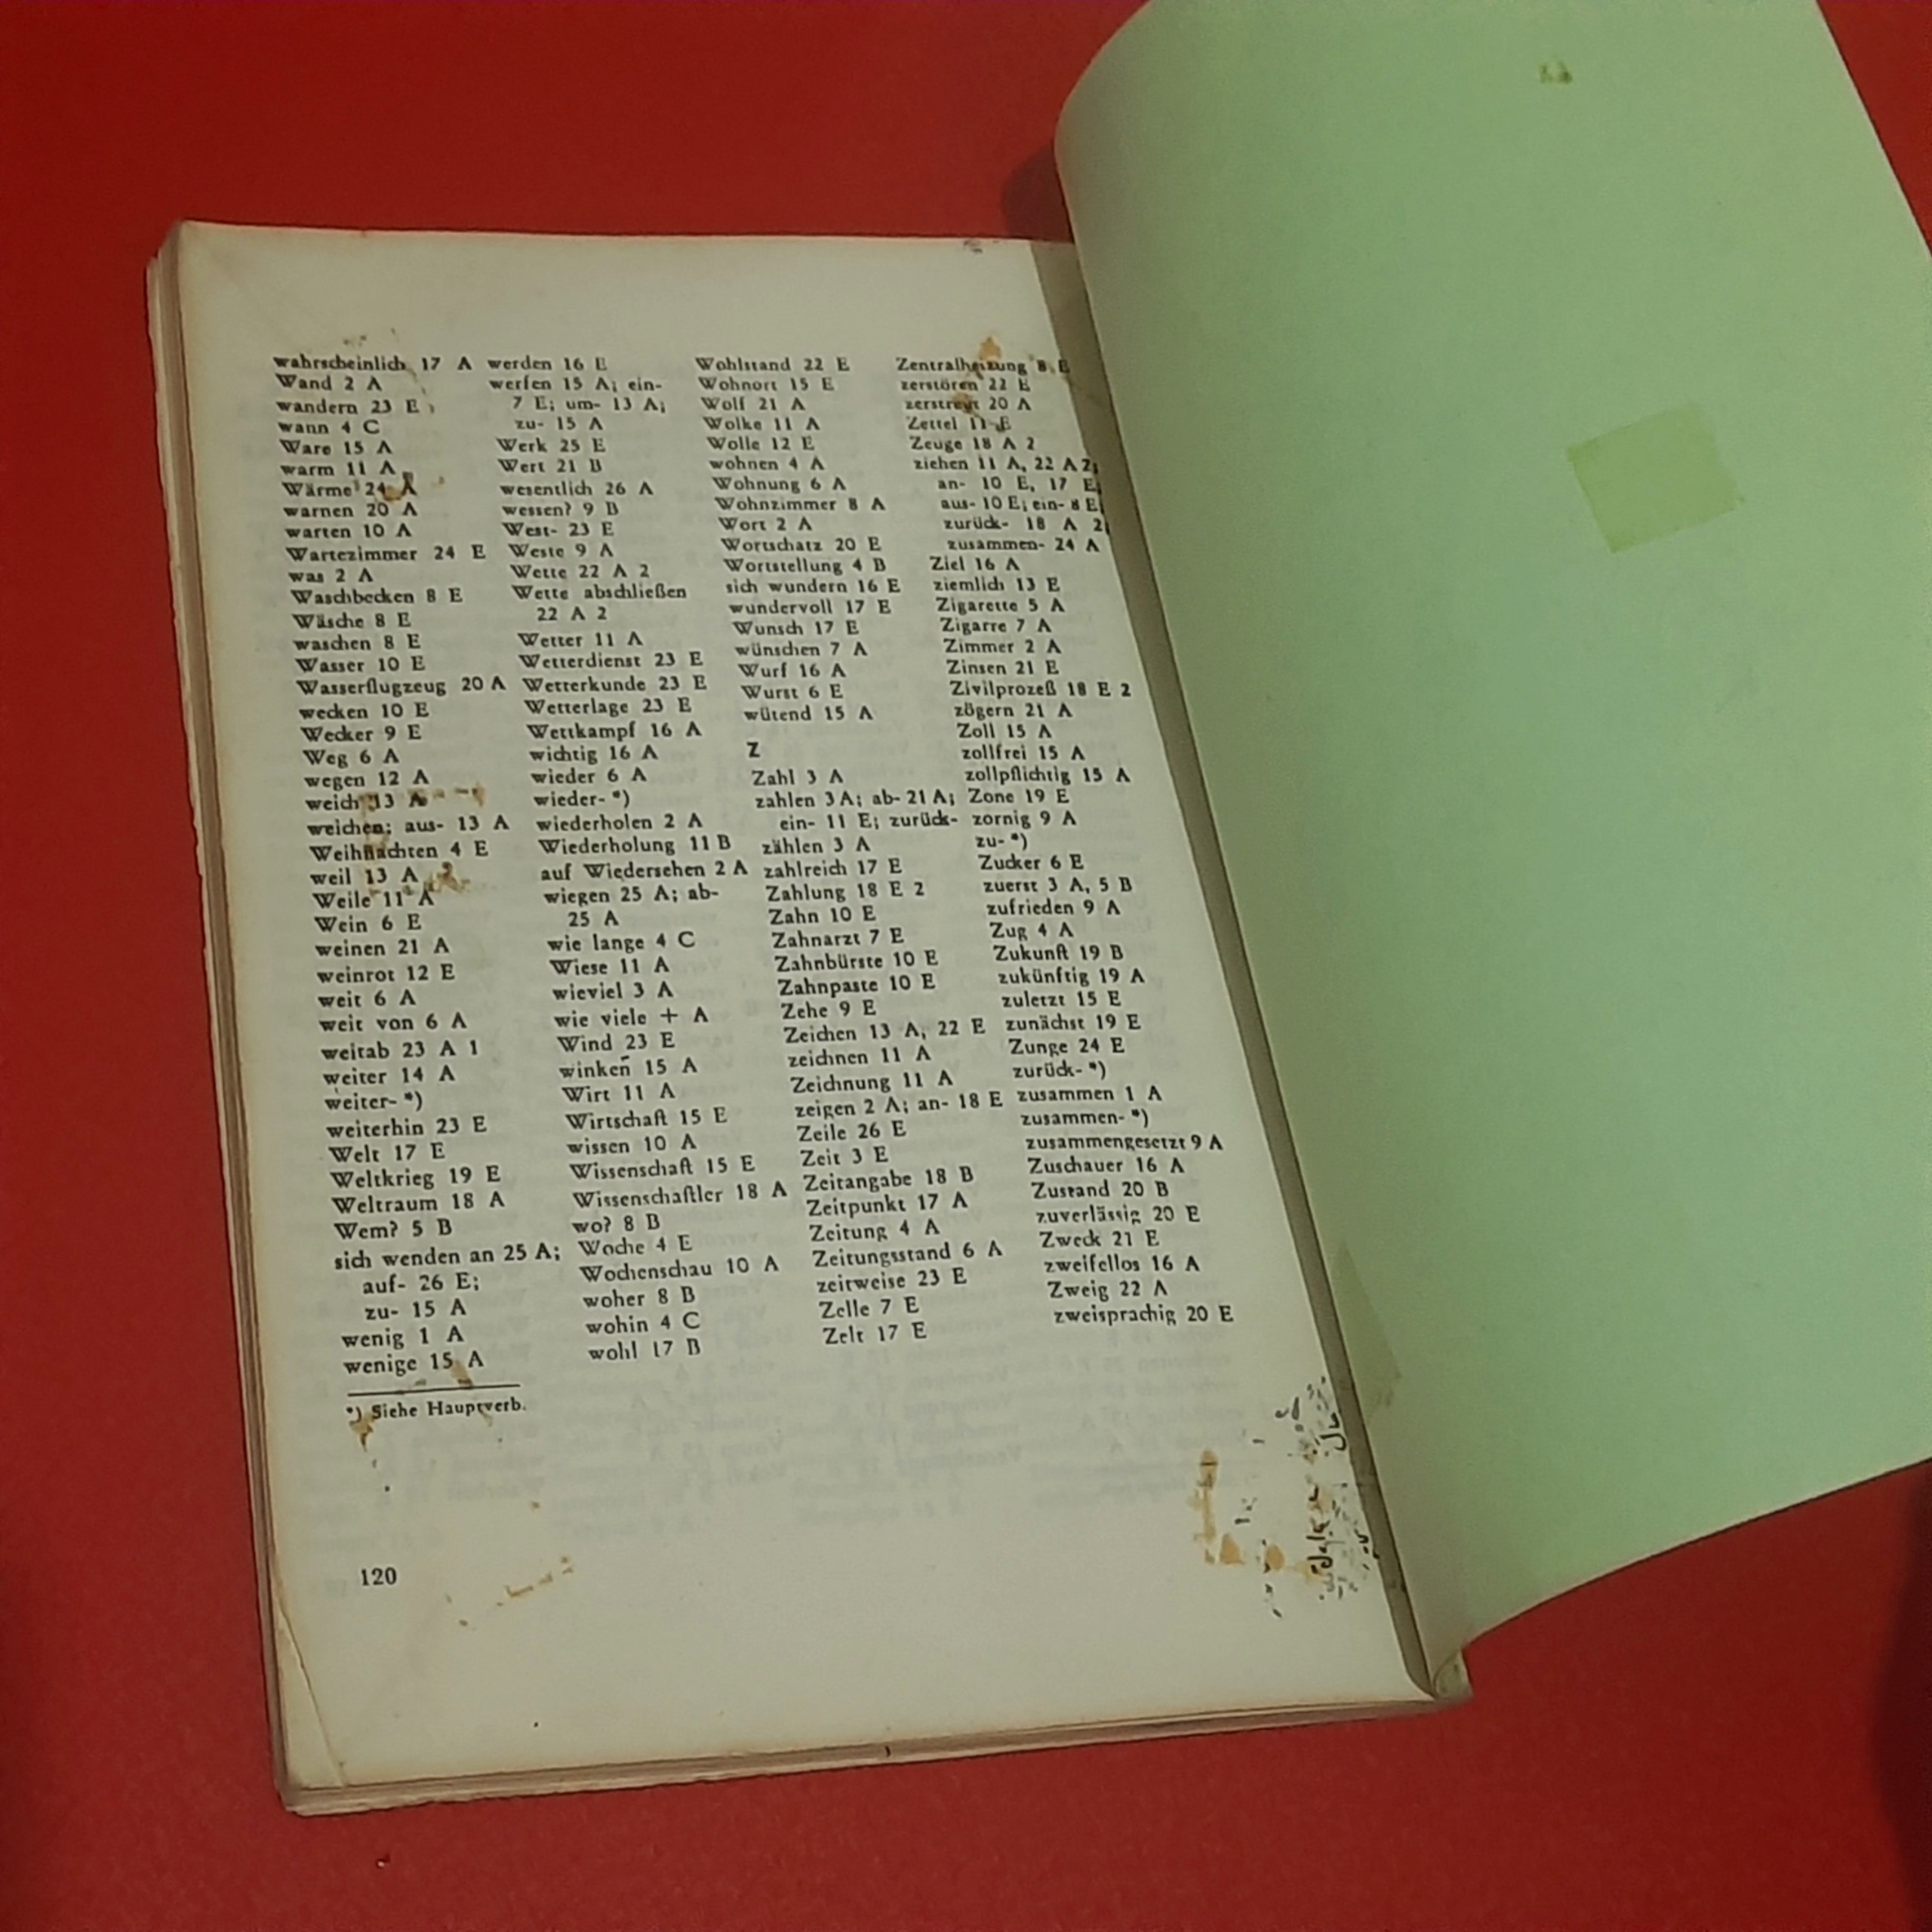 wahrscheinlich 17 A
Wand 2 A
wandern 23 E
wann 4 C
Ware 15 A
warm 11 A
Wärme 24 A
warnen 20 A
warten 10 A
Wartezimmer 24 E
was 2 A
Waschbecken 8 E
Wäsche 8 E
waschen 8 E
Wasser 10 E
Wasserflugzeug 20 A
wecken 10 E
Wecker 9 E
Weg 6 A
wegen 12 A
weich 13 A
weichen; aus- 13 A
Weihnachten 4 E
weil 13 A
Weile 11 A
Wein 6 E
weinen 21 A
weinrot 12 E
weit 6 A
weit von 6 A
weitab 23 A 1
weiter 14 A
weiter- *)
weiterhin 23 E
Welt 17 E
Weltkrieg 19 E
Weltraum 18 A
Wem? 5 B
sich wenden an 25 A;
auf- 26 E;
zu- 15 A
wenig 1 A
wenige 15 A
werden 16 E
werfen 15 A; ein-
7 E; um- 13 A;
zu- 15 A
Werk 25 E
Wert 21 B
wesentlich 26 A
wessen? 9 B
West- 23 E
Weste 9 A
Wette 22 A 2
Wette abschließen
22 A 2
Wetter 11 A
Wetterdienst 23 E
Wetterkunde 23 E
Wetterlage 23 E
Wettkampf 16 A
wichtig 16 A
wieder 6 A
wieder- *)
wiederholen 2 A
Wiederholung 11 B
auf Wiedersehen 2 A
wiegen 25 A; ab-
25 A
wie lange 4 C
Wiese 11 A
wieviel 3 A
wie viele + A
Wind 23 E
winken 15 A
Wirt 11 A
Wirtschaft 15 E
wissen 10 A
Wissenschaft 15 E
Wissenschaftler 18 A
wo? 8 B
Woche 4 E
Wochenschau 10 A
woher 8 B
wohin 4 C
wohl 17 B
Wohlstand 22 E
Wohnort 15 E
Wolf 21 A
Wolke 11 A
Wolle 12 E
wohnen 4 A
Wohnung 6 A
Wohnzimmer 8 A
Wort 2 A
Wortschatz 20 E
Wortstellung 4 B
sich wundern 16 E
wundervoll 17 E
Wunsch 17 E
wünschen 7 A
Wurf 16 A
Wurst 6 E
wütend 15 A
Z
Zahl 3 A
zahlen 3 A; ab- 21 A;
ein- 11 E; zurück-
zählen 3 A
zahlreich 17 E
Zahlung 18 E 2
Zahn 10 E
Zahnarzt 7 E
Zahnbürste 10 E
Zahnpaste 10 E
Zehe 9 E
Zeichen 13 A, 22 E
zeichnen 11 A
Zeichnung 11 A
zeigen 2 A; an- 18 E
Zeile 26 E
Zeit 3 E
Zeitangabe 18 B
Zeitpunkt 17 A
Zeitung 4 A
Zeitungsstand 6 A
zeitweise 23 E
Zelle 7 E
Zelt 17 E
Zentralheizung 8 E
zerstören 22 E
zerstreut 20 A
Zettel 11 E
Zeuge 18 A 2
ziehen 11 A, 22 A 2;
an- 10 E, 17 E;
aus- 10 E; ein- 8 E;
zurück- 18 A 2;
zusammen- 24 A
Ziel 16 A
ziemlich 13 E
Zigarette 5 A
Zigarre 7 A
Zimmer 2 A
Zinsen 21 E
Zivilprozeß 18 E 2
zögern 21 A
Zoll 15 A
zollfrei 15 A
zollpflichtig 15 A
Zone 19 E
zornig 9 A
zu- *)
Zucker 6 E
zuerst 3 A, 5 B
zufrieden 9 A
Zug 4 A
Zukunft 19 B
zukünftig 19 A
zuletzt 15 E
zunächst 19 E
Zunge 24 E
zurück- *)
zusammen 1 A
zusammen- *)
zusammengesetzt 9 A
Zuschauer 16 A
Zustand 20 B
zuverlässig 20 E
Zweck 21 E
zweifellos 16 A
Zweig 22 A
zweisprachig 20 E
*) Siehe Hauptverb.
120